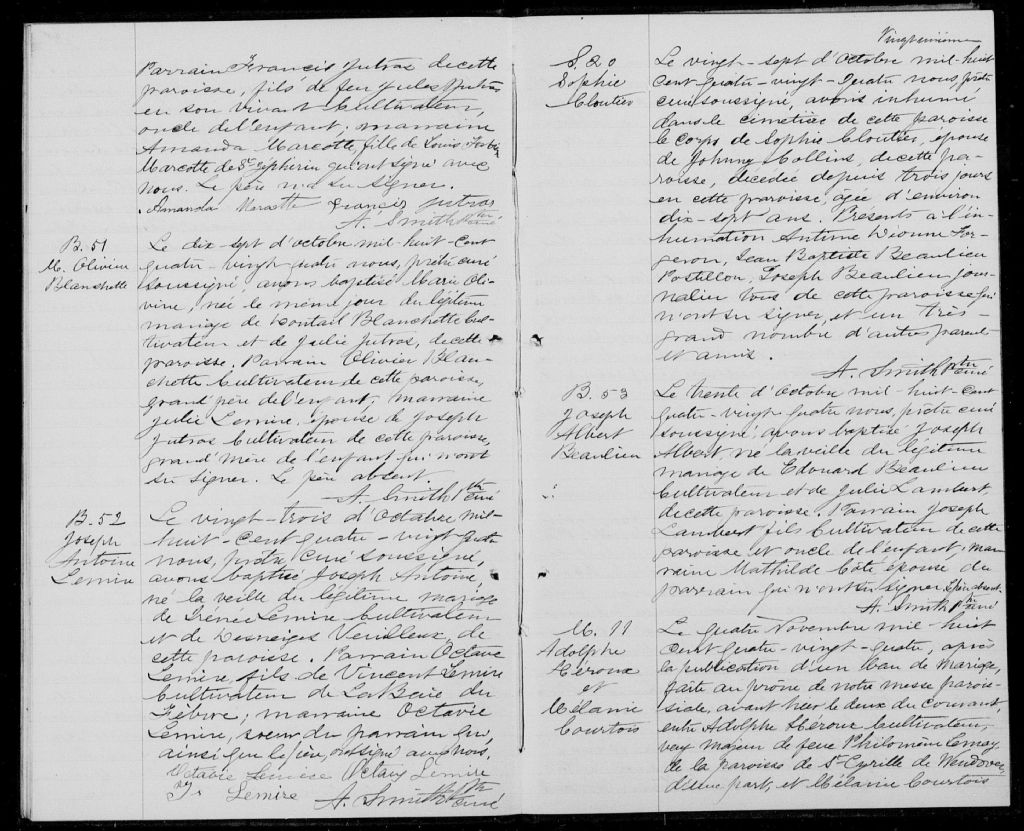 Parrain Francis Jutras de cette
paroisse, fils de feu Jules Jutras
en son vivant Cultivateur,
oncle de l'enfant; marraine
Amanda Marcotte, fille de Louis
Marcotte de St Zépherin qui ont signé avec
nous. Le père n'a su signer.
Amanda Marcotte Francis Jutras
A. Smith Ptre Curé
B. 51
M. Olivine
Blanchette
Le dix-sept d'octobre mil-huit-cent
quatre-vingt quatre nous, prêtre curé
soussigné avons baptisé Marie Oli-
vine, née le même jour du légitime
mariage de Blanchette Cul-
tivateur et de Julie Jutras, de cette
paroisse. Parrain Olivier Blan-
chette Cultivateur de cette paroisse,
grand père de l'enfant; marraine
Julie Lemire, épouse de Joseph
Jutras Cultivateur de cette paroisse,
grand'mère de l'enfant qui n'ont
su signer. Le père absent.
A. Smith Ptre Curé
B. 52
Joseph
Antoine
Lemire
Le vingt-trois d'Octobre mil-
huit-cent quatre-vingt quatre
nous, prêtre curé soussigné,
avons baptisé Joseph Antoine,
né la veille du légitime mariage
de Irénée Lemire Cultivateur
et de Veilleux, de
cette paroisse. Parrain Octave
Lemire fils de Vincent Lemire
Cultivateur de La Baie du
Febvre; marraine Octavie
Lemire, soeur du parrain qui,
ainsi que le père, ont signé avec nous.
Octavie Lemire Octave Lemire
Lemire A. Smith Ptre Curé
Vingtunième
S. 20
Sophie
Cloutier
Le vingt-sept d'Octobre mil-huit
cent quatre-vingt-quatre nous, prêtre
curé soussigné, avons inhumé
dans le cimetière de cette paroisse
le corps de Sophie Cloutier, épouse
de Johnny Collins, de cette pa-
roisse, décédée depuis trois jours
en cette paroisse, âgée d'environ
dix-sept ans. Présents à l'in-
humation Antime Dionne For-
geron, Jean Baptiste Beaulieu
Postillon, Joseph Beaulieu jour-
nalier tous de cette paroisse qui
n'ont su signer, et un très-
grand nombre d'autres parents
et amis.
A. Smith Ptre Curé
B. 53
Joseph
Albert
Beaulieu
Le trente d'Octobre mil-huit-cent
quatre-vingt quatre nous, prêtre curé
soussigné, avons baptisé Joseph
Albert né la veille du légitime
mariage de Edouard Beaulieu
Cultivateur et de Julie Lambert,
de cette paroisse. Parrain Joseph
Lambert fils Cultivateur de cette
paroisse et oncle de l'enfant; mar-
raine Mathilde Côté épouse du
parrain qui n'ont su signer. Père absent.
A. Smith Ptre Curé
M. 11
Adolphe
Héroux
et
Mélanie
Courtois
Le quatre Novembre mil-huit
cent quatre-vingt-quatre, après
la publication d'un ban de mariage,
faite au prône de notre messe parois-
siale, avant hier le deux du courant,
entre Adolphe Héroux Cultivateur,
veuf majeur de feue Philomène Lemay,
de la paroisse de St Cyrille de Wendover,
d'une part, et Mélanie Courtois